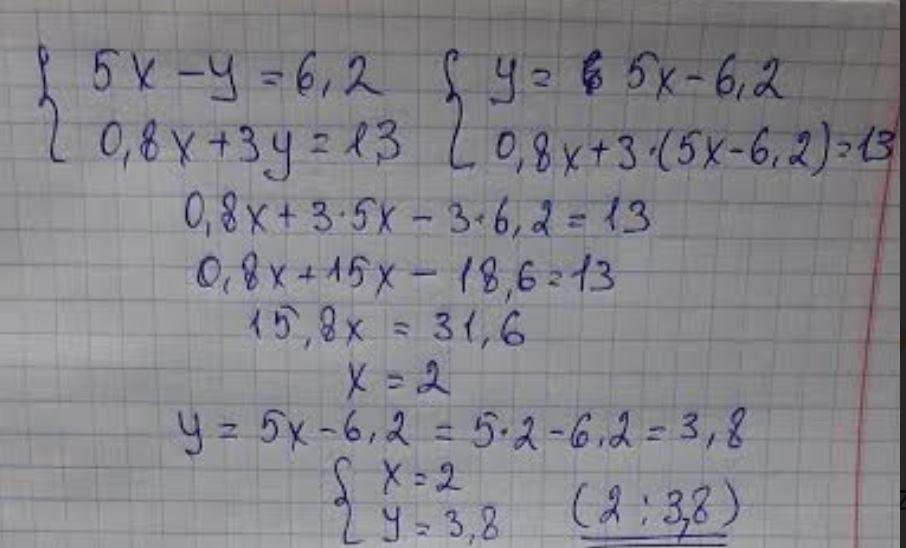 5x - y = 6,2
0,8x + 3y = 13
y = 5x - 6,2
0,8x + 3·(5x - 6,2) = 13
0,8x + 3·5x - 3·6,2 = 13
0,8x + 15x - 18,6 = 13
15,8x = 31,6
x = 2
y = 5x - 6,2 = 5·2 - 6,2 = 3,8
x = 2
y = 3,8
(2 ; 3,8)